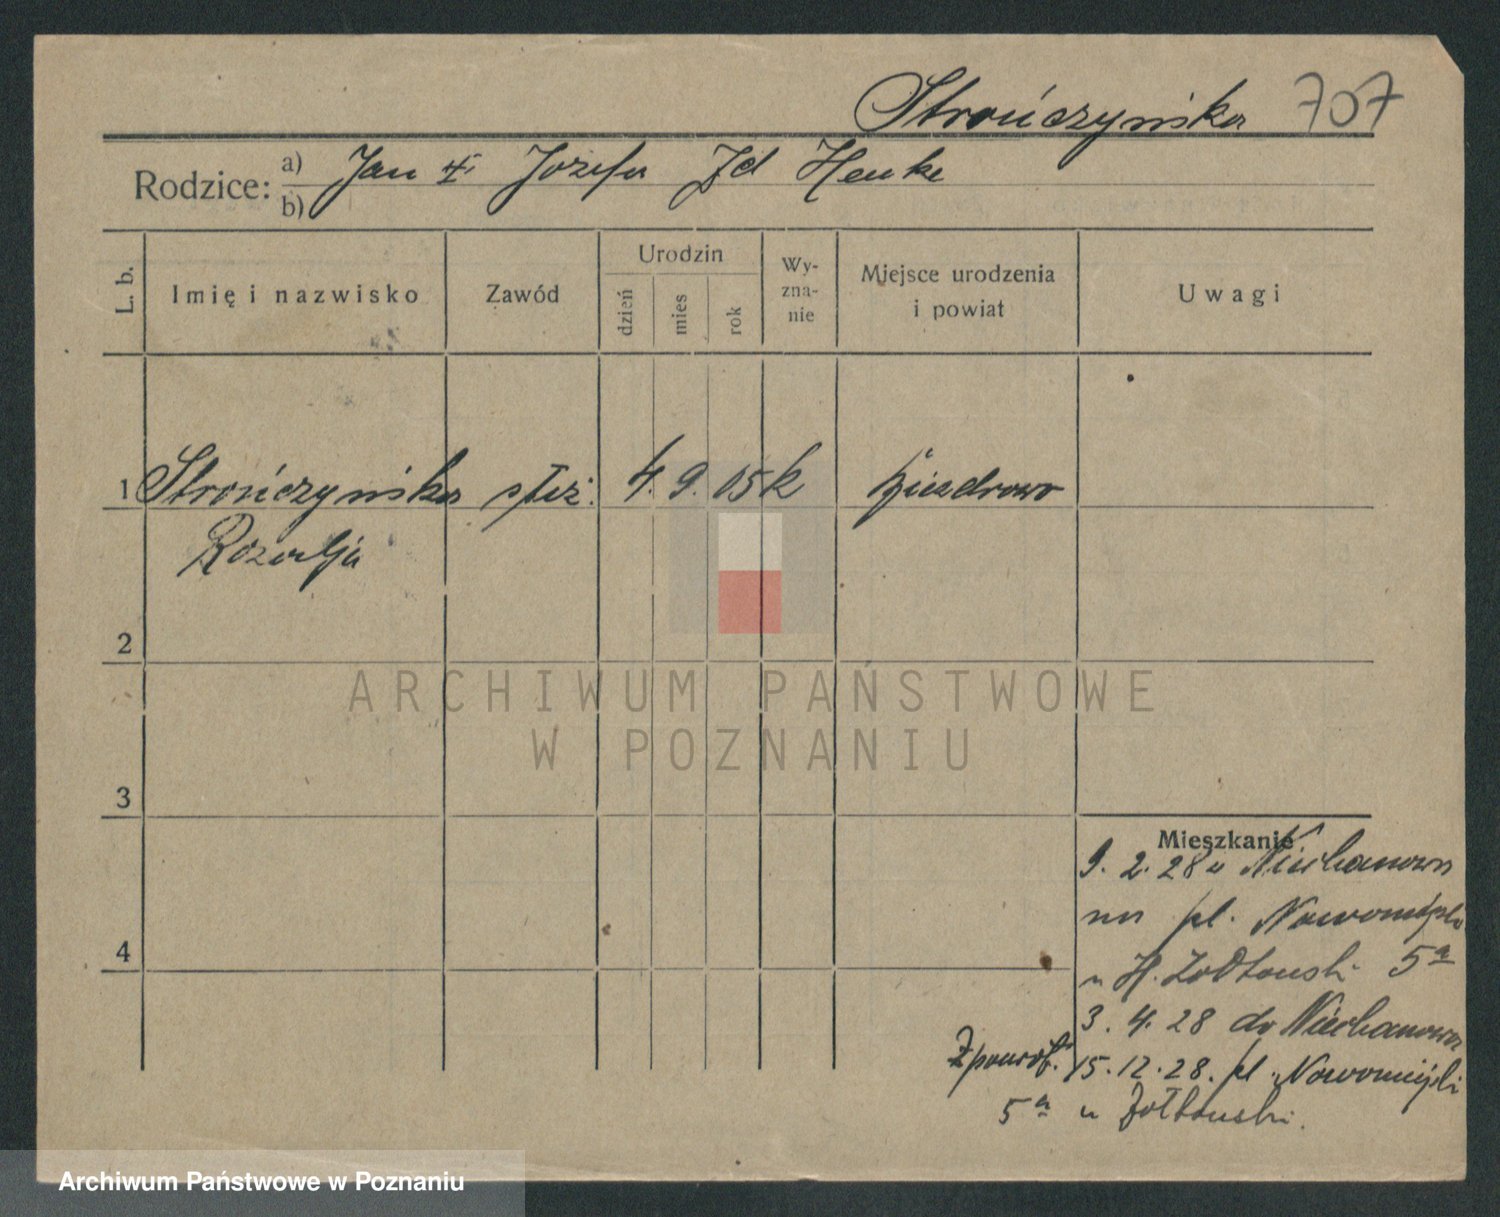 Strończyńska 707
Rodzice: a) Jan i Józefa Henke
b)
L. b. Imię i nazwisko Zawód Urodzin dzień mies rok Wy-zna-nie Miejsce urodzenia i powiat Uwagi
1 Strończyńska służ. 4. 9. 05 k
Rozalja
2
ARCHIWUM PAŃSTWOWE
W POZNANIU
3
Mieszkanie
9. 2. 28 u Niechanowa
na pl. Nowomiejski
u H. Żółtowski 5a
4
3. 4. 28 do Niechanowa
Z powrot. 15. 12. 28. pl. Nowomiejski
5a u Żółtowski.
Archiwum Państwowe w Poznaniu